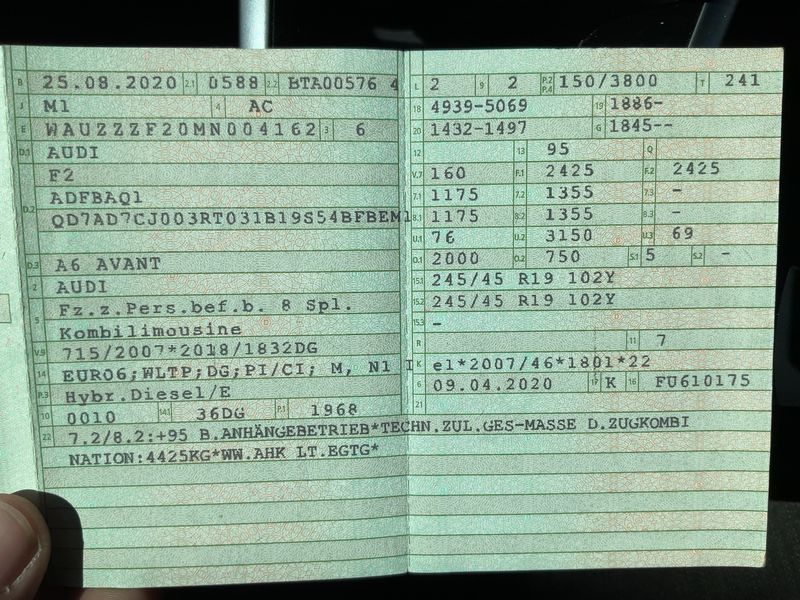 B 25.08.2020 2.1 0588 2.2 BTA00576 4
J M1 4 AC
E WAUZZZF20MN004162 3 6
D.1 AUDI
F2
ADFBAQ1
D.2 QD7AD7CJ003RT031B19S54BFBEM1
D.3 A6 AVANT
2 AUDI
5 Fz.z.Pers.bef.b. 8 Spl.
Kombilimousine
V.9 715/2007*2018/1832DG
14 EURO6;WLTP;DG;PI/CI; M, N1 I
P.3 Hybr.Diesel/E
10 0010 14.1 36DG P.1 1968
22 7.2/8.2:+95 B.ANHÄNGEBETRIEB*TECHN.ZUL.GES-MASSE D.ZUGKOMBI
NATION:4425KG*WW.AHK LT.EGTG*
L 2 9 2 P.2 P.4 150/3800 T 241
18 4939-5069 19 1886-
20 1432-1497 G 1845--
12 13 95 Q
V.7 160 F.1 2425 F.2 2425
7.1 1175 7.2 1355 7.3 -
8.1 1175 8.2 1355 8.3 -
U.1 76 U.2 3150 U.3 69
O.1 2000 O.2 750 S.1 5 S.2 -
15.1 245/45 R19 102Y
15.2 245/45 R19 102Y
15.3 -
R 11 7
K e1*2007/46*1801*22
6 09.04.2020 17 K 16 FU610175
21